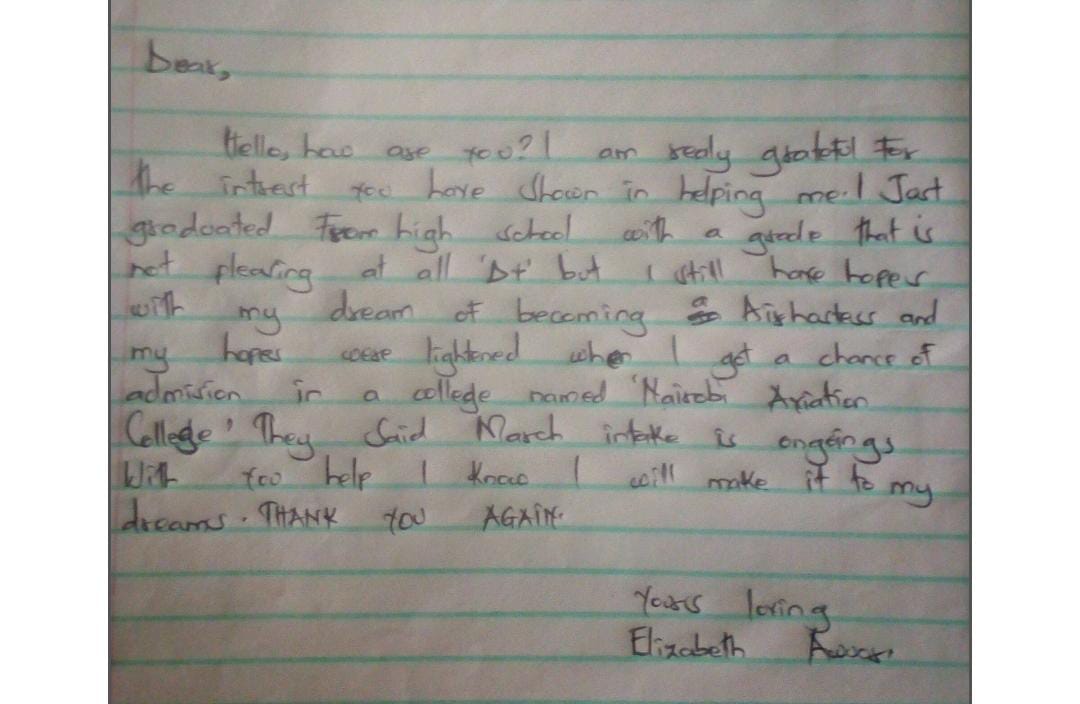 Dear,
Hello, how are you? I am realy grateful for
the intrest you have shown in helping me. I Just
graduated from high school with a grade that is
not pleasing at all 'D+' but I still have hopes
with my dream of becoming a Airhostess and
my hopes were lightened when I got a chance of
admission in a college named 'Nairobi Aviation
College' They said March intake is ongoings
With you help I know I will make it to my
dreams. THANK YOU AGAIN.
Yours loving
Elizabeth